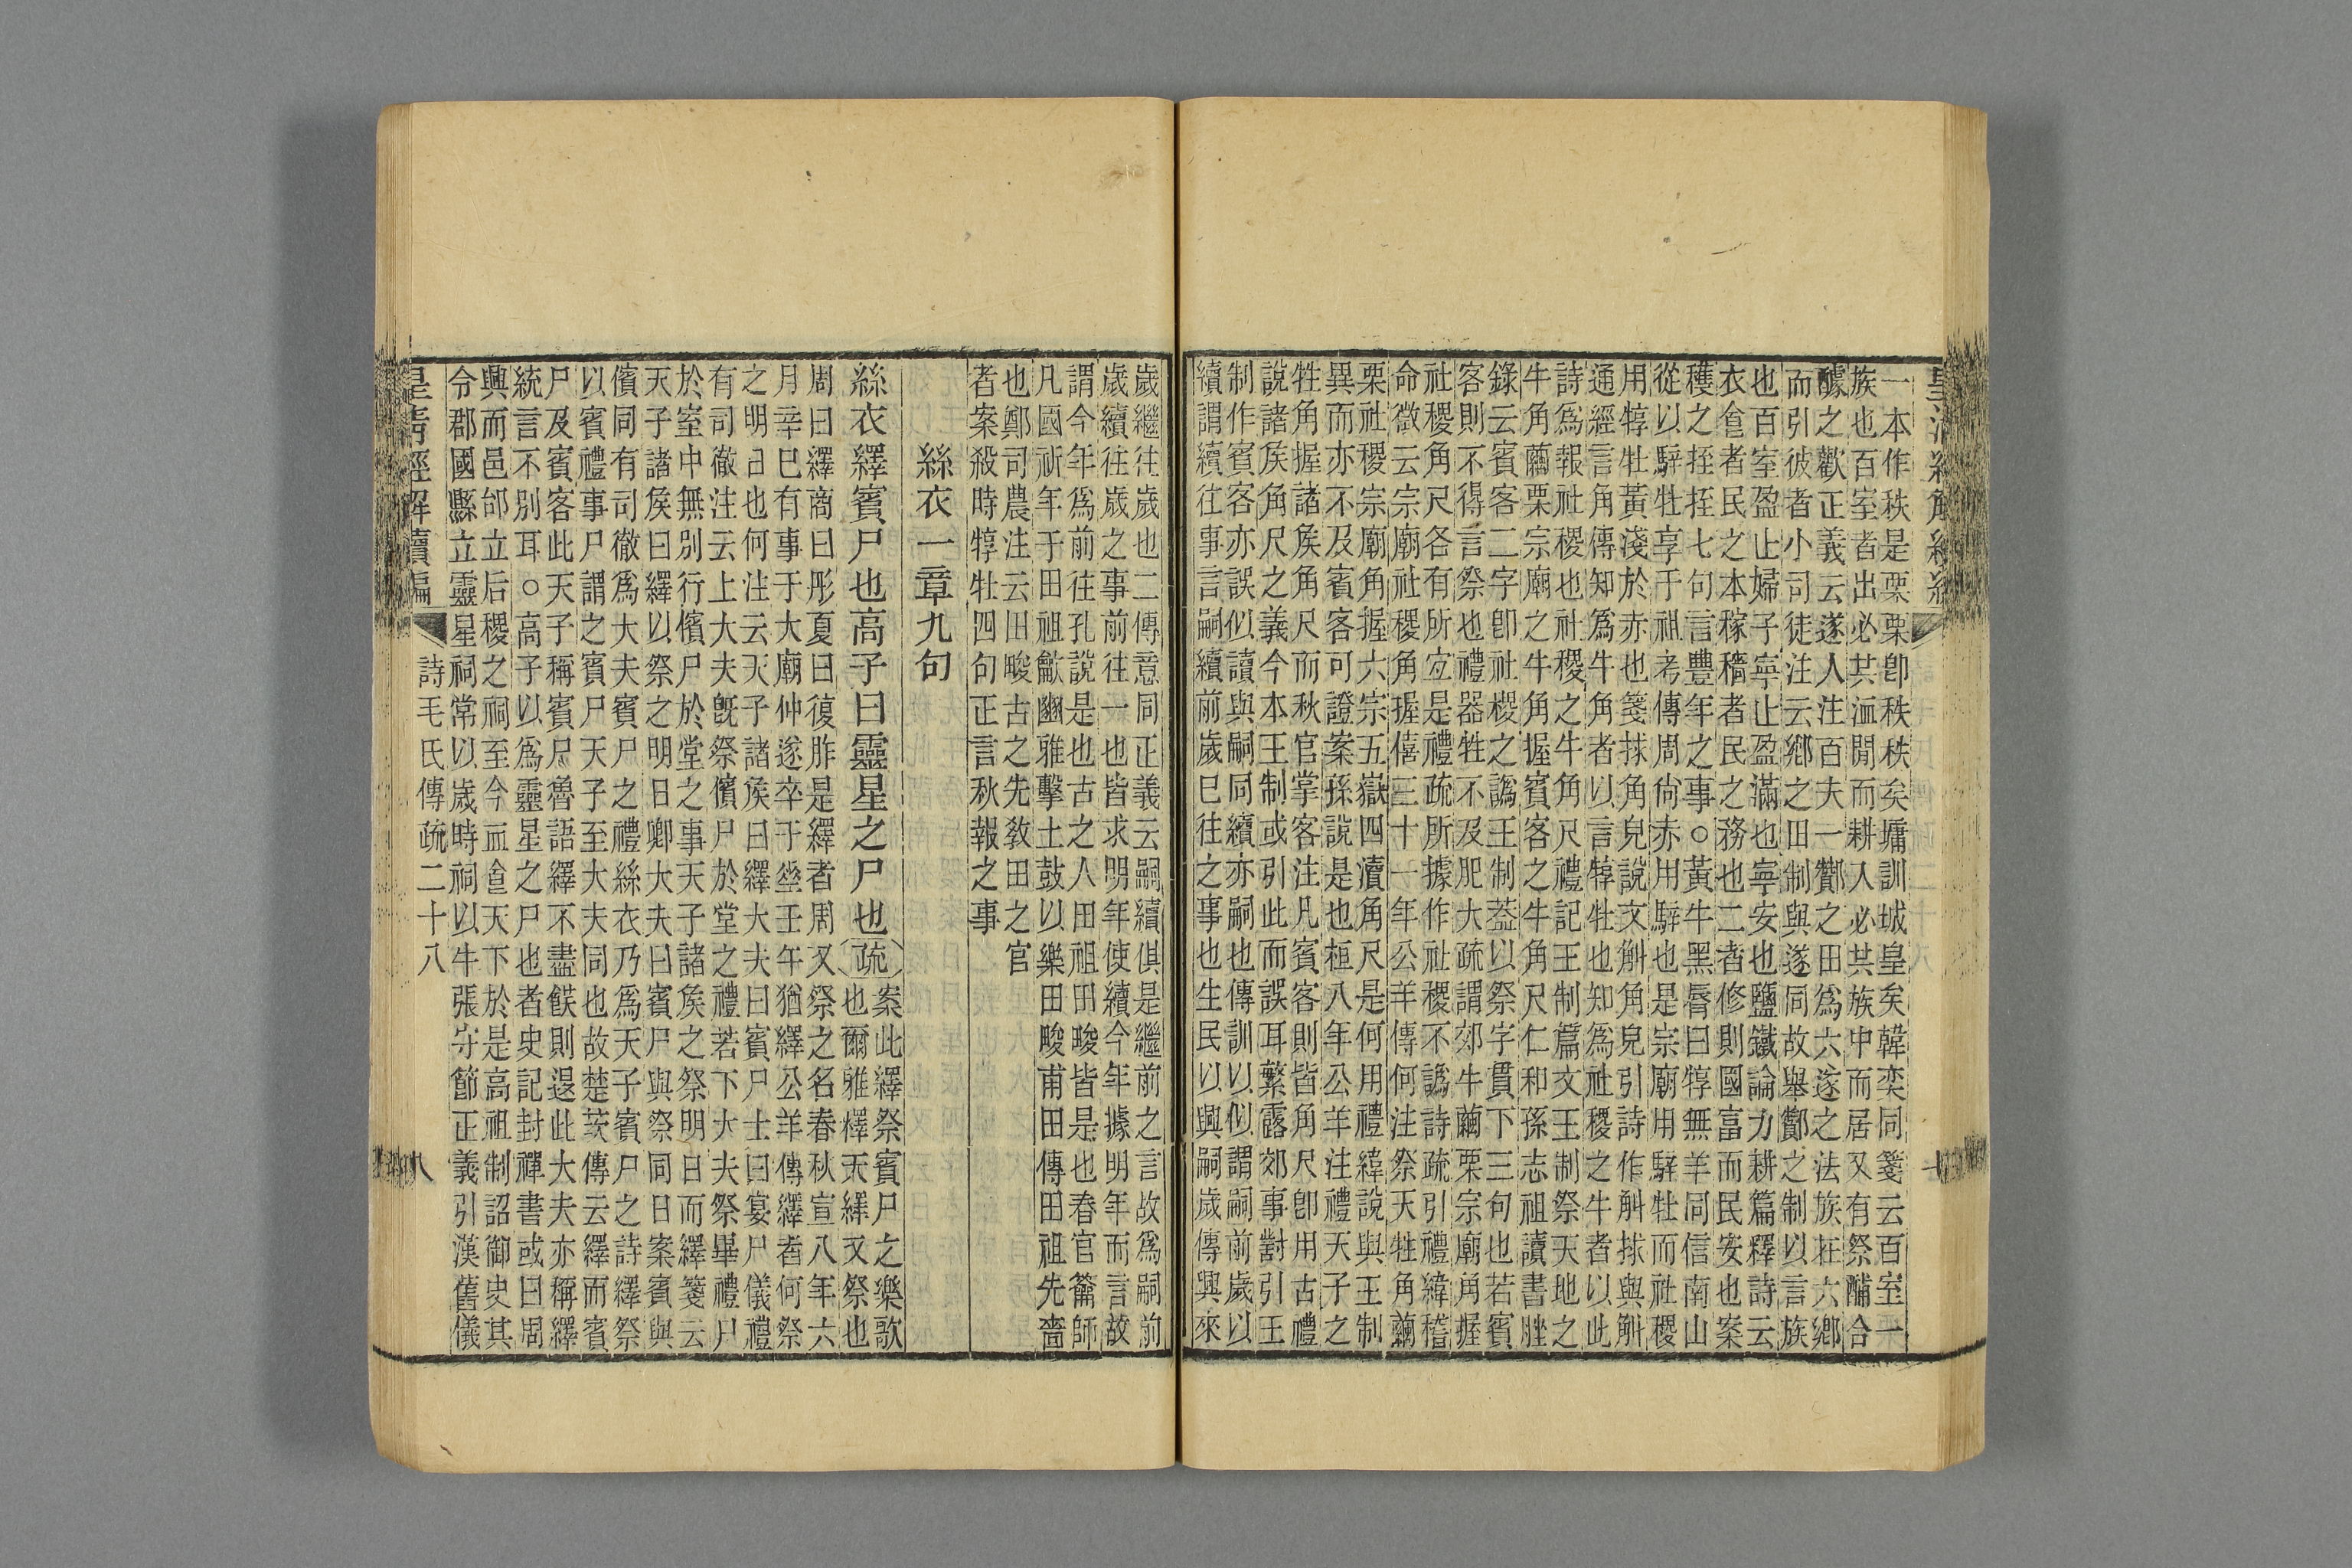 一本作秩是栗栗卽秩秩矣墉訓城皇矣韓奕同箋云百室一
族也百室者出必共洫閒而耕入必共族中而居又有祭酺合
醵之歡正義云遂人注百夫一酇之田爲六遂之法族在六鄉
而引彼者小司徒注云鄉之田制與遂同故舉酇之制以言族
也百室盈止婦子寧止盈滿也寧安也鹽鐵論力耕篇釋詩云
衣食者民之本稼穡者民之務也二者修則國富而民安也案
穫之挃挃七句言豐年之事○黃牛黑脣曰犉無羊同信南山
從以騂牡享于祖考傳周尙赤用騂也是宗廟用騂牡而社稷
用犉牡黃淺於赤也箋捄角皃說文觓角皃引詩作觓捄與觓
通經言角傳知爲牛角者以言犉牡也知爲社稷之牛者以此
詩爲報社稷也社稷之牛角尺禮記王制篇文王制祭天地之
牛角繭栗宗廟之牛角握賓客之牛角尺仁和孫志祖讀書脞
錄云賓客二字卽社稷之譌王制葢以祭字貫下三句也若賓
客則不得言祭也禮器牲不及肥大疏謂郊牛繭栗宗廟角握
社稷角尺各有所宜是禮疏所據作社稷不譌詩疏引禮緯稽
命徵云宗廟社稷角握僖三十一年公羊傳何注祭天牲角繭
栗社稷宗廟角握六宗五嶽四瀆角尺是何用禮緯說與王制
異而亦不及賓客可證案孫說是也桓八年公羊注禮天子之
牲角握諸矦角尺而秋官掌客注凡賓客則皆角尺卽用古禮
說諸矦角尺之義今本王制或引此而誤耳繁露郊事對引王
制作賓客亦誤似讀與嗣同續亦嗣也傳訓以似謂嗣前歲以
續謂續往事言嗣續前歲巳往之事也生民以興嗣歲傳興來
歲繼往歲也二傳意同正義云嗣續俱是繼前之言故爲嗣前
歲續往歲之事前往一也皆求明年使續今年據明年而言故
謂今年爲前往孔說是也古之人田祖田畯皆是也春官籥師
凡國祈年于田祖龡豳雅擊土鼓以樂田畯甫田傳田祖先嗇
也鄭司農注云田畯古之先敎田之官
者案殺時犉牡四句正言秋報之事
絲衣一章九句
絲衣繹賓尸也高子曰靈星之尸也疏案此繹祭賓尸之樂歌
也爾雅釋天繹又祭也
周曰繹商曰肜夏曰復胙是繹者周又祭之名春秋宣八年六
月辛巳有事于大廟仲遂卒于垂壬午猶繹公羊傳繹者何祭
之明日也何注云天子諸矦曰繹大夫曰賓尸士曰宴尸儀禮
有司徹注云上大夫旣祭儐尸於堂之禮若下大夫祭畢禮尸
於室中無別行儐尸於堂之事天子諸矦之祭明日而繹箋云
天子諸矦曰繹以祭之明日卿大夫曰賓尸與祭同日案賓與
儐同有司徹爲大夫賓尸之禮絲衣乃爲天子賓尸之詩繹祭
以賓禮事尸謂之賓尸天子至大夫同也故楚茨傳云繹而賓
尸及賓客此天子稱賓尸魯語繹不盡飫則退此大夫亦稱繹
統言不別耳○高子以爲靈星之尸也者史記封禪書或曰周
興而邑邰立后稷之祠至今血食天下於是高祖制詔御史其
令郡國縣立靈星祠常以歲時祠以牛張守節正義引漢舊儀
皇淸經解續編
詩毛氏傳疏二十八
八